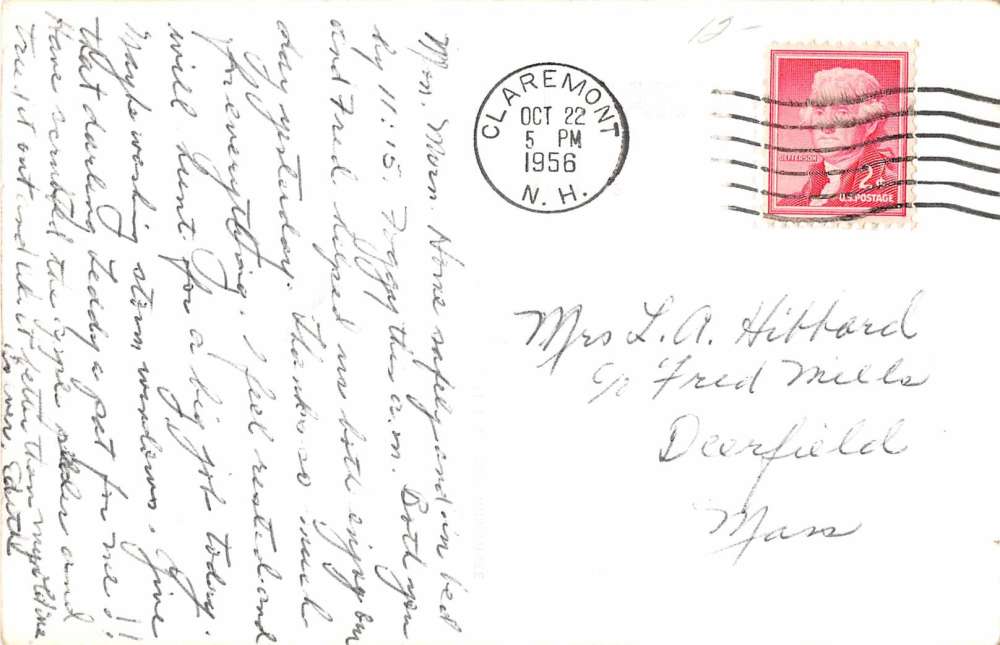 Mon. Morn. Home safely and in bed
by 11:15. Foggy this a.m. Both you
and Fred helped us both enjoy our
day yesterday. Thanks so much
for everything. I feel rested and
will hunt for a big job today.
Maybe washing storm windows. Give
that darling Teddy a pat for me!!
Have the and
tried it out and like it better than my old one
Edith
12-
CLAREMONT
OCT 22
5 PM
1956
N. H.
JEFFERSON
2¢
U.S. POSTAGE
Mrs L. A. Hibbard
c/o Fred Mills
Deerfield
Mass